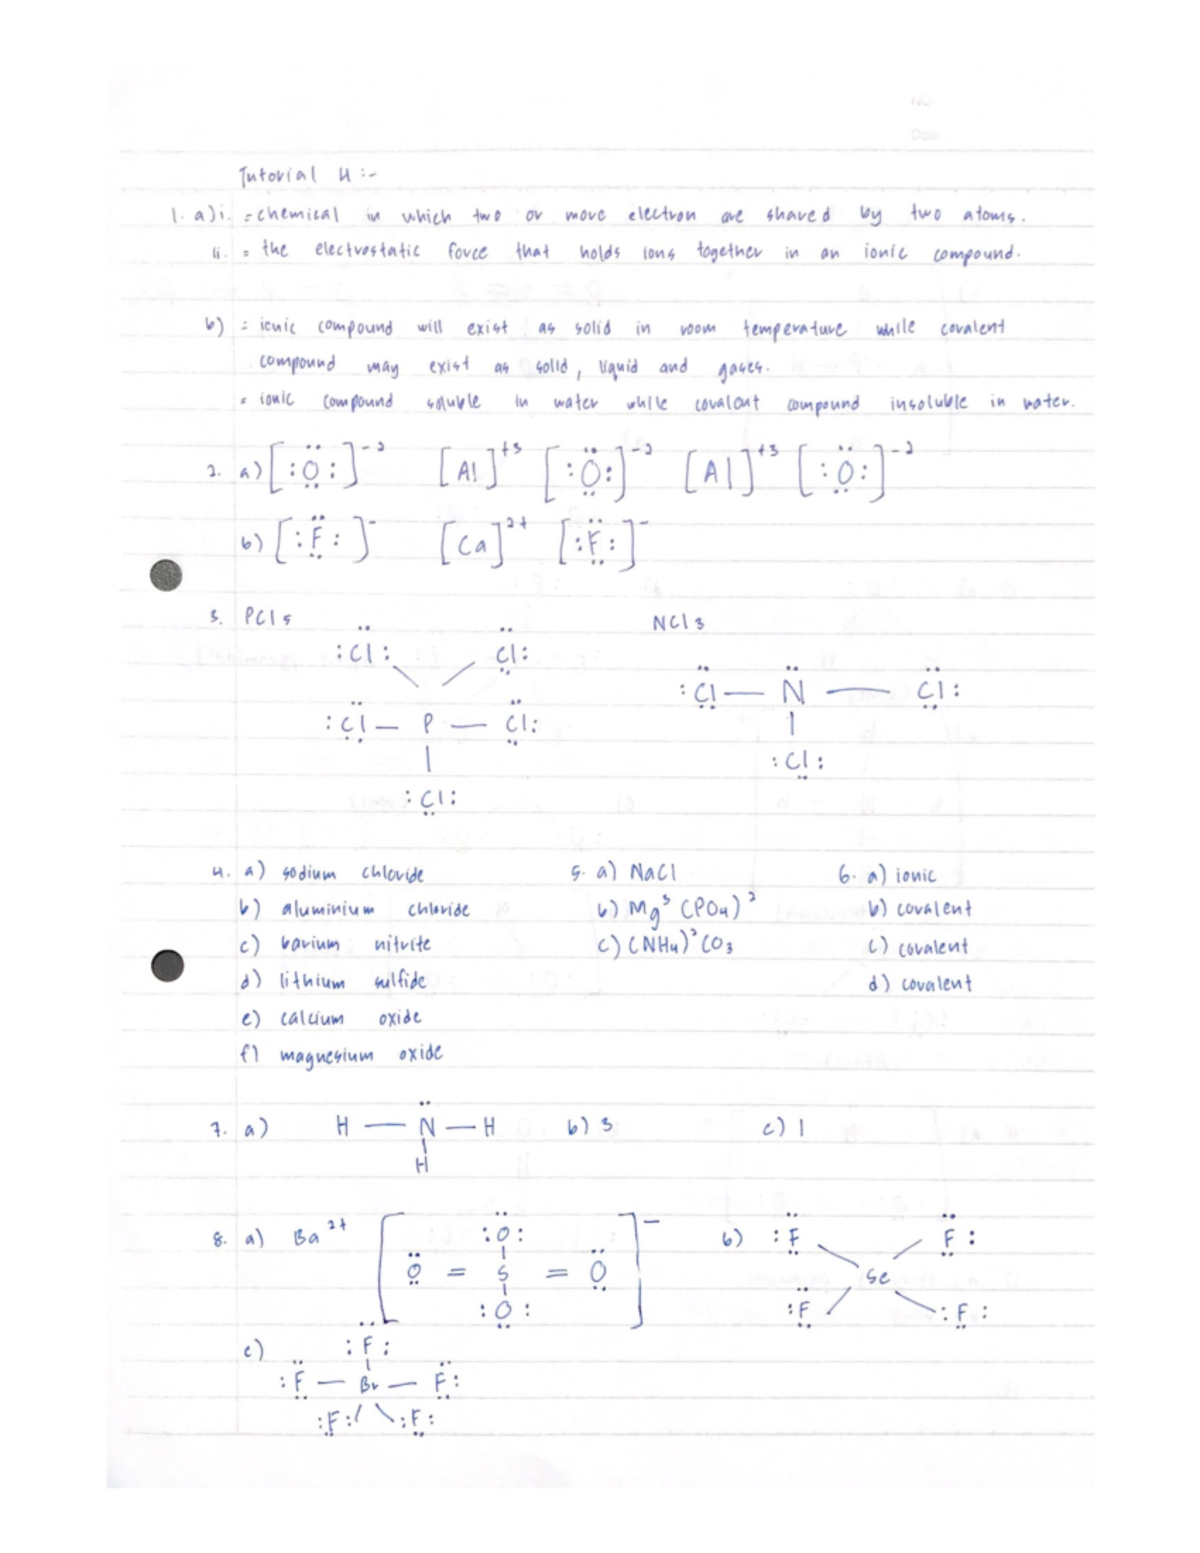 NO
Date
Tutorial 4 :-
1. a) i. = chemical in which two or more electron are shared by two atoms.
ii. = the electrostatic force that holds ions together in an ionic compound.
b) = ionic compound will exist as solid in room temperature while covalent
compound may exist as solid, liquid and gases.
= ionic compound soluble in water while covalent compound insoluble in water.
2. a) [:O:]⁻² [Al]⁺³ [:O:]⁻² [Al]⁺³ [:O:]⁻²
b) [:F:]⁻ [Ca]²⁺ [:F:]⁻
3. PCl5 NCl3
:Cl: Cl:
:Cl — N — Cl:
:Cl — P — Cl:
:Cl:
:Cl:
4. a) sodium chloride 5. a) NaCl 6. a) ionic
b) aluminium chloride b) Mg³(PO4)² b) covalent
c) barium nitrite c) (NH4)²CO3 c) covalent
d) lithium sulfide d) covalent
e) calcium oxide
f) magnesium oxide
7. a) H — N — H b) 3 c) 1
H
:O:
8. a) Ba²⁺ [O = S = O]⁻ b) :F F:
Se
:O: :F :F:
c) :F:
:F — Br — F:
:F: :F: